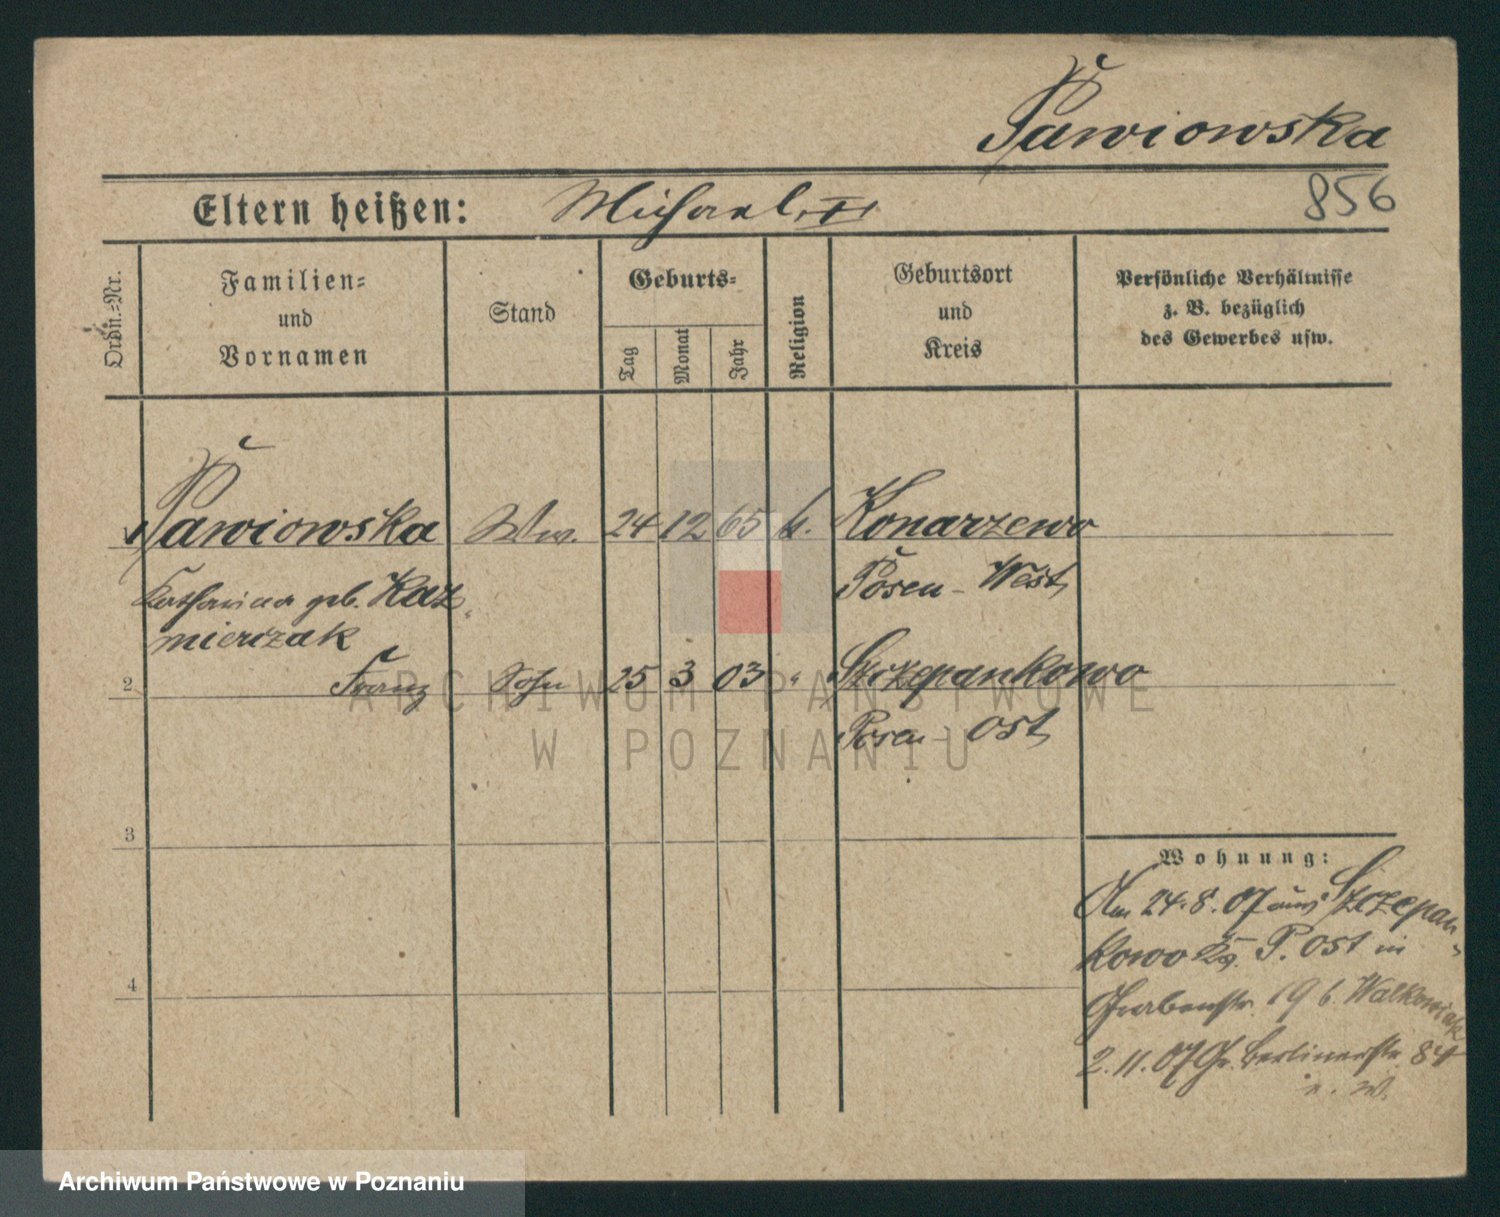 Pawiowska
856
Eltern heißen: Michael, II
Ordn.-Nr.
Familien-
und
Vornamen
Stand
Geburts-
Tag
Monat
Jahr
Religion
Geburtsort
und
Kreis
Persönliche Verhältnisse
z. B. bezüglich
des Gewerbes usw.
1 Pawiowska Ww. 24 12 65 k. Konarzewo
Katharina geb. Kaz- Posen-West
mierczak
2 Franz Sohn 25 3 03 " Szczepankowo
Posen-Ost
3
4
Wohnung:
Am 24.8.07 aus Szczepan-
kowo P. Ost in
Grabenstr. 19 b. Walkowiak
2.11.07 Gr. Berlinerstr. 84
ARCHIWUM PAŃSTWOWE
W POZNANIU
Archiwum Państwowe w Poznaniu